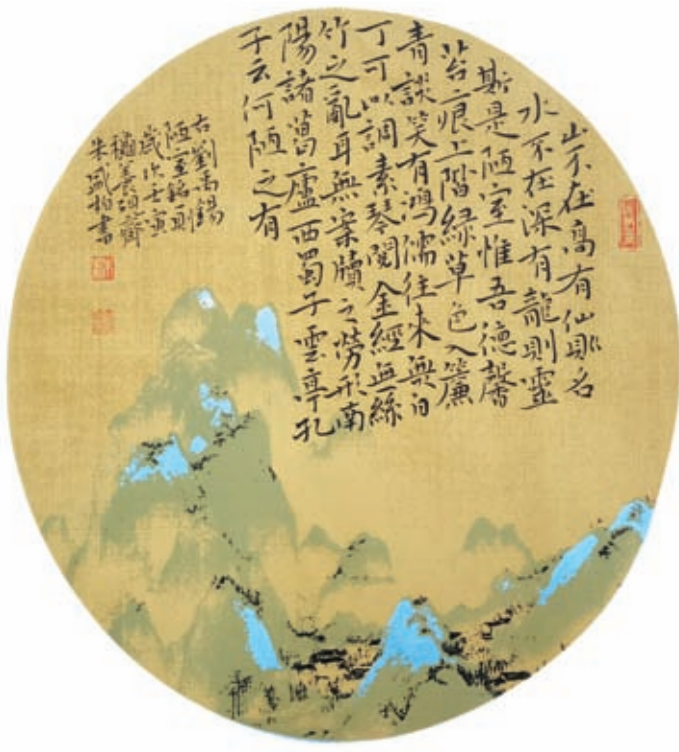 山不在高有仙則名
水不在深有龍則靈
斯是陋室惟吾德馨
苔痕上階綠草色入簾
青談笑有鴻儒往來無白
丁可以調素琴閱金經無絲
竹之亂耳無案牘之勞形南
陽諸葛廬西蜀子雲亭孔
子云何陋之有
右劉禹錫
陋室銘則
歲次壬寅
養頌齋
朱盛柏書